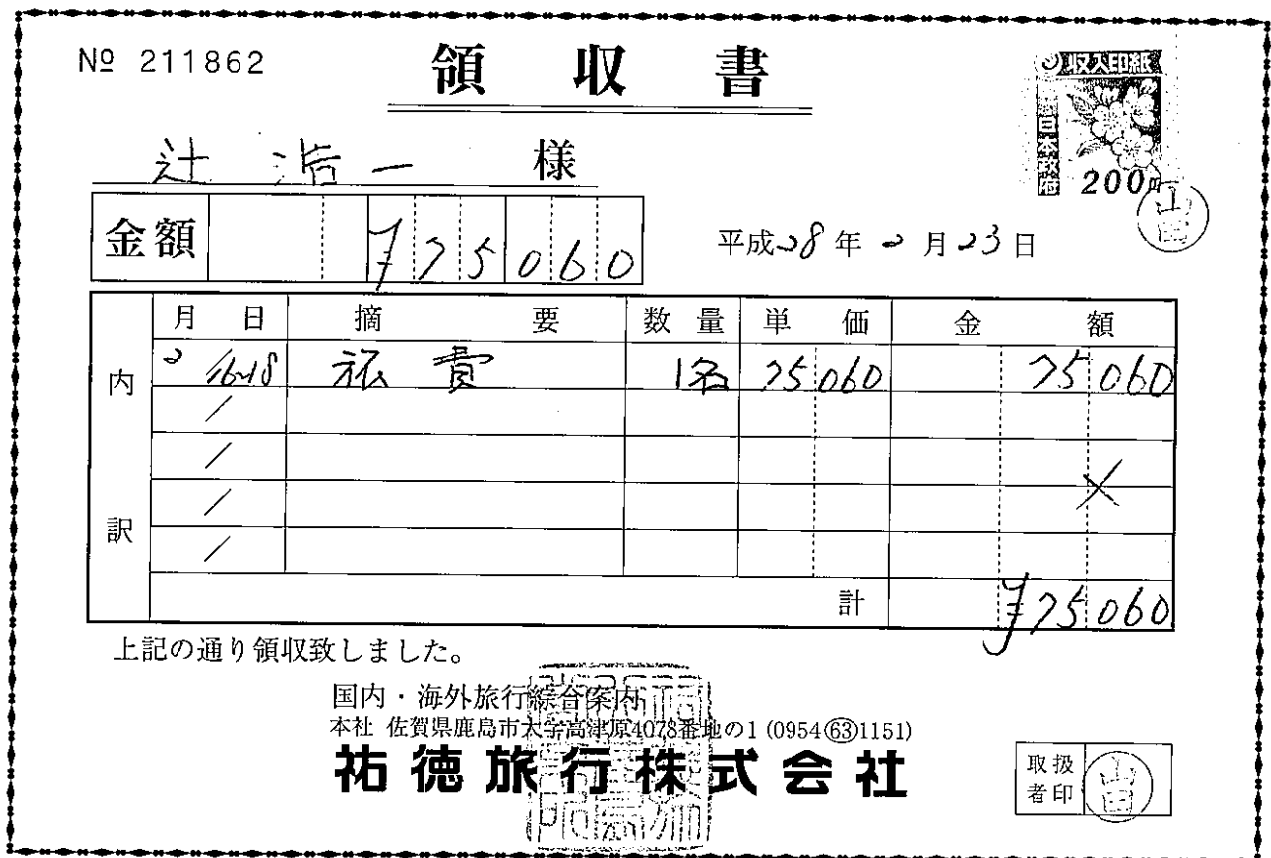 № 211862
領収書
辻 浩一 様
収入印紙
日本政府
200円
山田
金額 ¥75060
平成28年2月23日
月 日 摘 要 数 量 単 価 金 額
内訳
2/16~18 旅費 1名 75060 75060
/
/
/
/
計 ¥75060
上記の通り領収致しました。
国内・海外旅行綜合案内
本社 佐賀県鹿島市大字高津原4078番地の1 (0954㊿1151)
祐徳旅行株式会社
取扱者印
山田